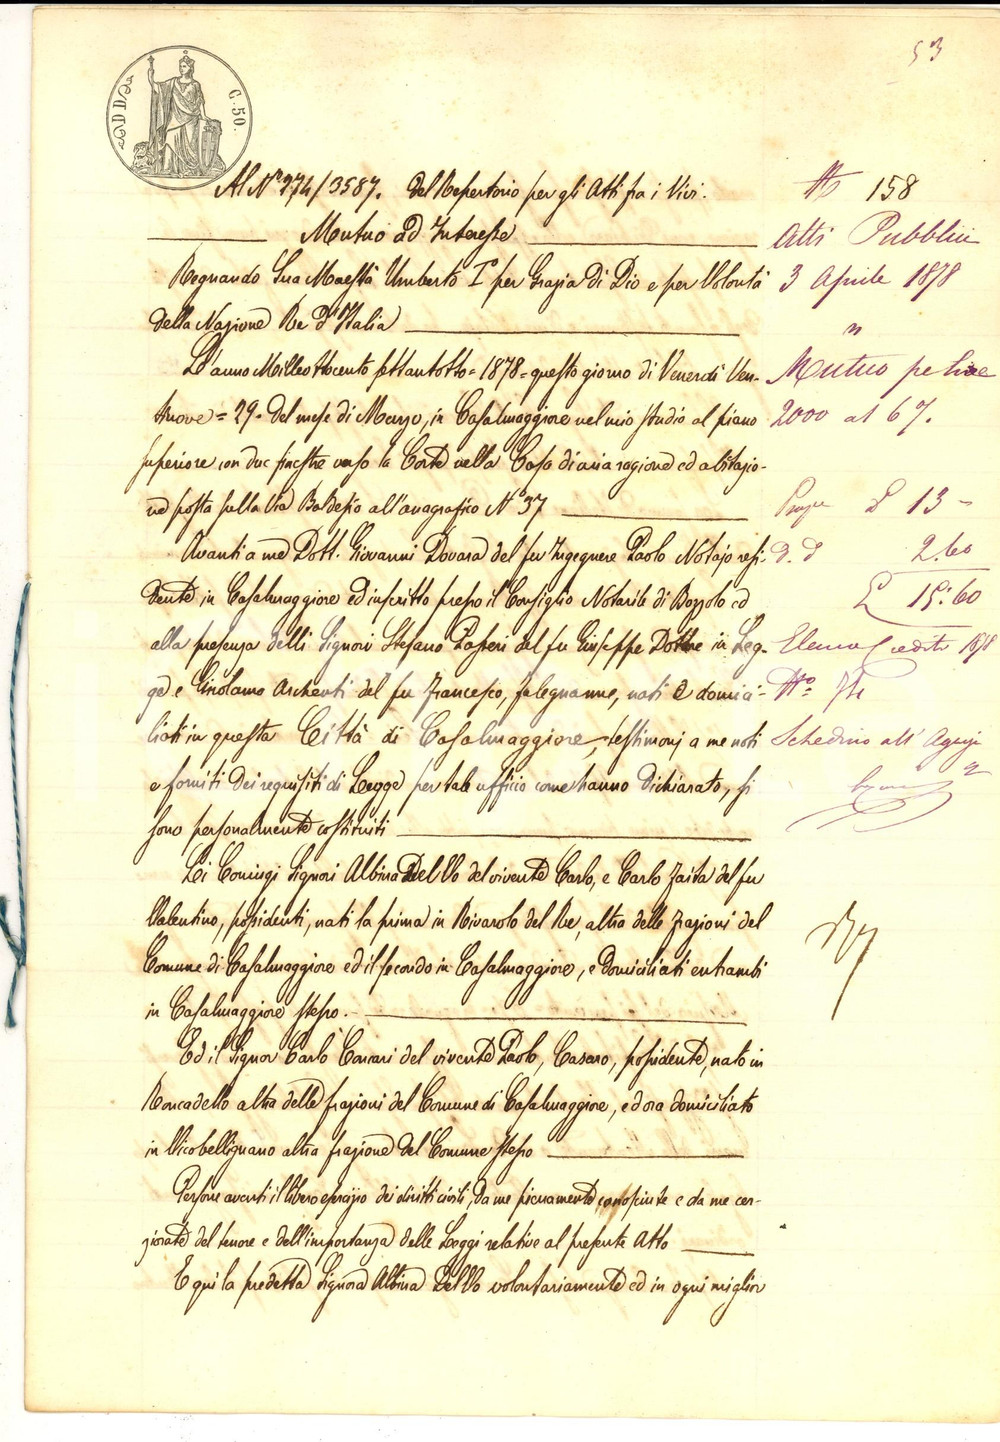 53
C. 50.
Al N° 274/3587. Del Repertorio per gli Atti fra i Vivi.
Mutuo ad Interesse
Regnando Sua Maestà Umberto I° per Grazia di Dio e per Volontà
della Nazione Re d'Italia
L'anno Milleottocento settantotto = 1878 = questo giorno di Venerdì Ven-
tinove = 29. del mese di Marzo, in Casalmaggiore nel mio studio al piano
superiore con due finestre verso la Corte nella Casa di mia ragione ed abitazio-
ne posta sulla Via Baldesio all'anagrafico N° 37
Avanti a me Dott. Giovanni Dovara del fu Ingegnere Paolo Notajo resi-
dente in Casalmaggiore ed inscritto presso il Consiglio Notarile di Bozzolo ed
alla presenza delli Signori Stefano del fu Giuseppe Dottore in Leg-
ge e Girolamo Archenti del fu Francesco, falegname, nati e domici-
liati in questa Città di Casalmaggiore, testimonj a me noti
e forniti dei requisiti di Legge per tale ufficio come hanno dichiarato, si
sono personalmente costituiti
Li Coniugi Signori Albina Del Vo del vivente Carlo, e Carlo Zaita del fu
Valentino, possidenti, nati la prima in Rivarolo del Re, altra delle frazioni del
Comune di Casalmaggiore ed il secondo in Casalmaggiore, e domiciliati entrambi
in Casalmaggiore stesso.
Ed il Signor Carlo Convari del vivente Paolo, Casaro, possidente, nato in
Roncadello altra delle frazioni del Comune di Casalmaggiore, ed ora domiciliato
in Vicobellignano altra frazione del Comune stesso
Persone aventi il libero esercizio dei diritti civili, da me pienamente conosciute e da me cer-
ziorate del tenore e dell'importanza delle Leggi relative al presente Atto
E qui la predetta Signora Albina Del Vo volontariamente ed in ogni miglior
N 158
Atti Pubblici
3 Aprile 1878
n
Mutuo per Lire
2000 al 6 %.
£ 13 -
d. d 2.60
£ 15:60
1878
N°
Schedino all' Agenzia